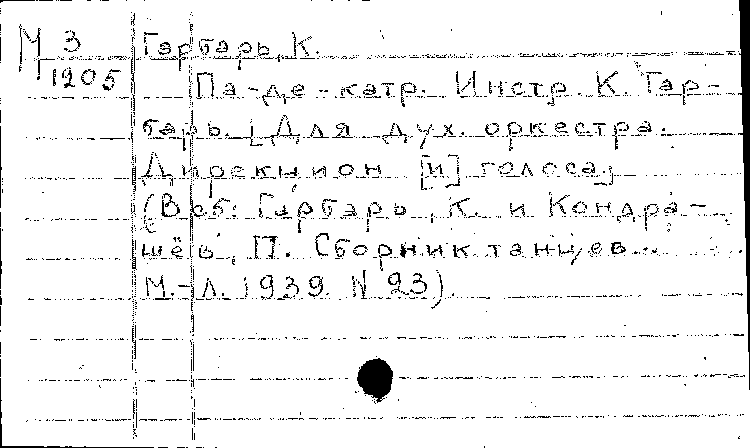 М 3
1205
Гарбарь, К.
Па-де-катр. Инстр. К. Гар-
барь. [Для дух. оркестра.
Дирекцион [и] голоса]
(В сб: Гарбарь, К. и Кондра-
шёв, П. Сборник танцев...
М.-Л. 1939. N 23).